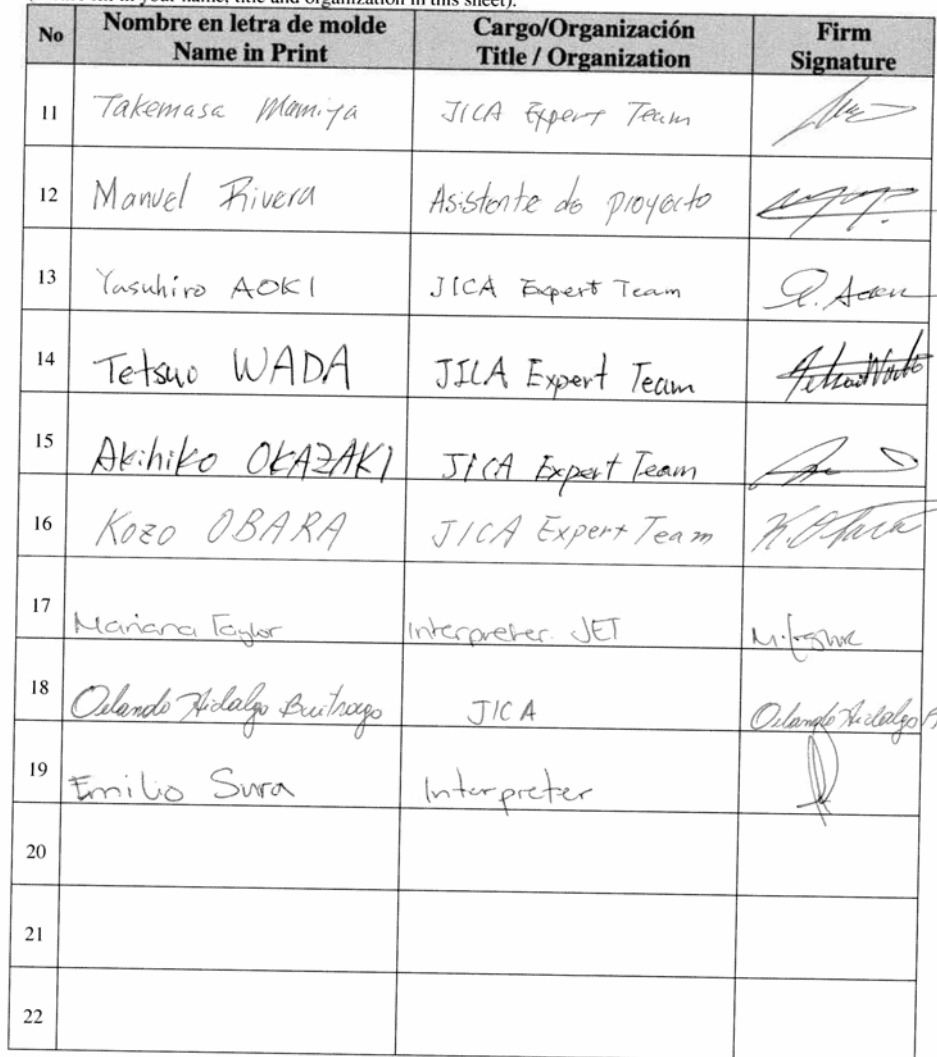 your name, title and organization in this sheet).
No Nombre en letra de molde Cargo/Organización Firm
Name in Print Title / Organization Signature
11 Takemasa Mamiya JICA Expert Team
12 Manuel Rivera Asistente de proyecto
13 Yasuhiro AOKI JICA Expert Team
14 Tetsuo WADA JICA Expert Team
15 Akihiko OKAZAKI JICA Expert Team
16 Kozo OBARA JICA Expert Team K. Obara
17 Mariana Taylor Interpreter. JET
18 Orlando Hidalgo Buitrago JICA Orlando Hidalgo B
19 Emilio Sura Interpreter
20
21
22